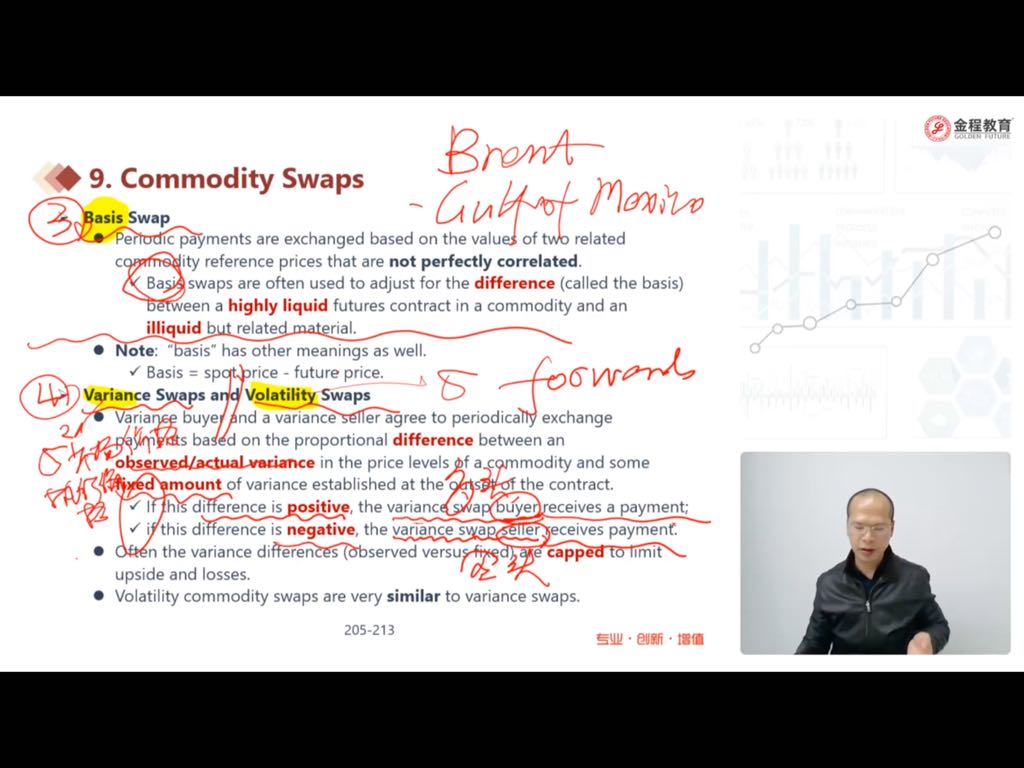 金程教育
GOLDEN FUTURE
Brent
- Gulf of Mexico
9. Commodity Swaps
③ Basis Swap
Periodic payments are exchanged based on the values of two related
commodity reference prices that are not perfectly correlated.
✓ Basis swaps are often used to adjust for the difference (called the basis)
between a highly liquid futures contract in a commodity and an
illiquid but related material.
Note: "basis" has other meanings as well.
✓ Basis = spot price - future price.
forwards
④ Variance Swaps and Volatility Swaps
Variance buyer and a variance seller agree to periodically exchange
payments based on the proportional difference between an
observed/actual variance in the price levels of a commodity and some
fixed amount of variance established at the outset of the contract.
多头
✓ If this difference is positive, the variance swap buyer receives a payment;
✓ if this difference is negative, the variance swap seller receives payment.
Often the variance differences (observed versus fixed) are capped to limit
空头
upside and losses.
Volatility commodity swaps are very similar to variance swaps.
205-213
专业·创新·增值